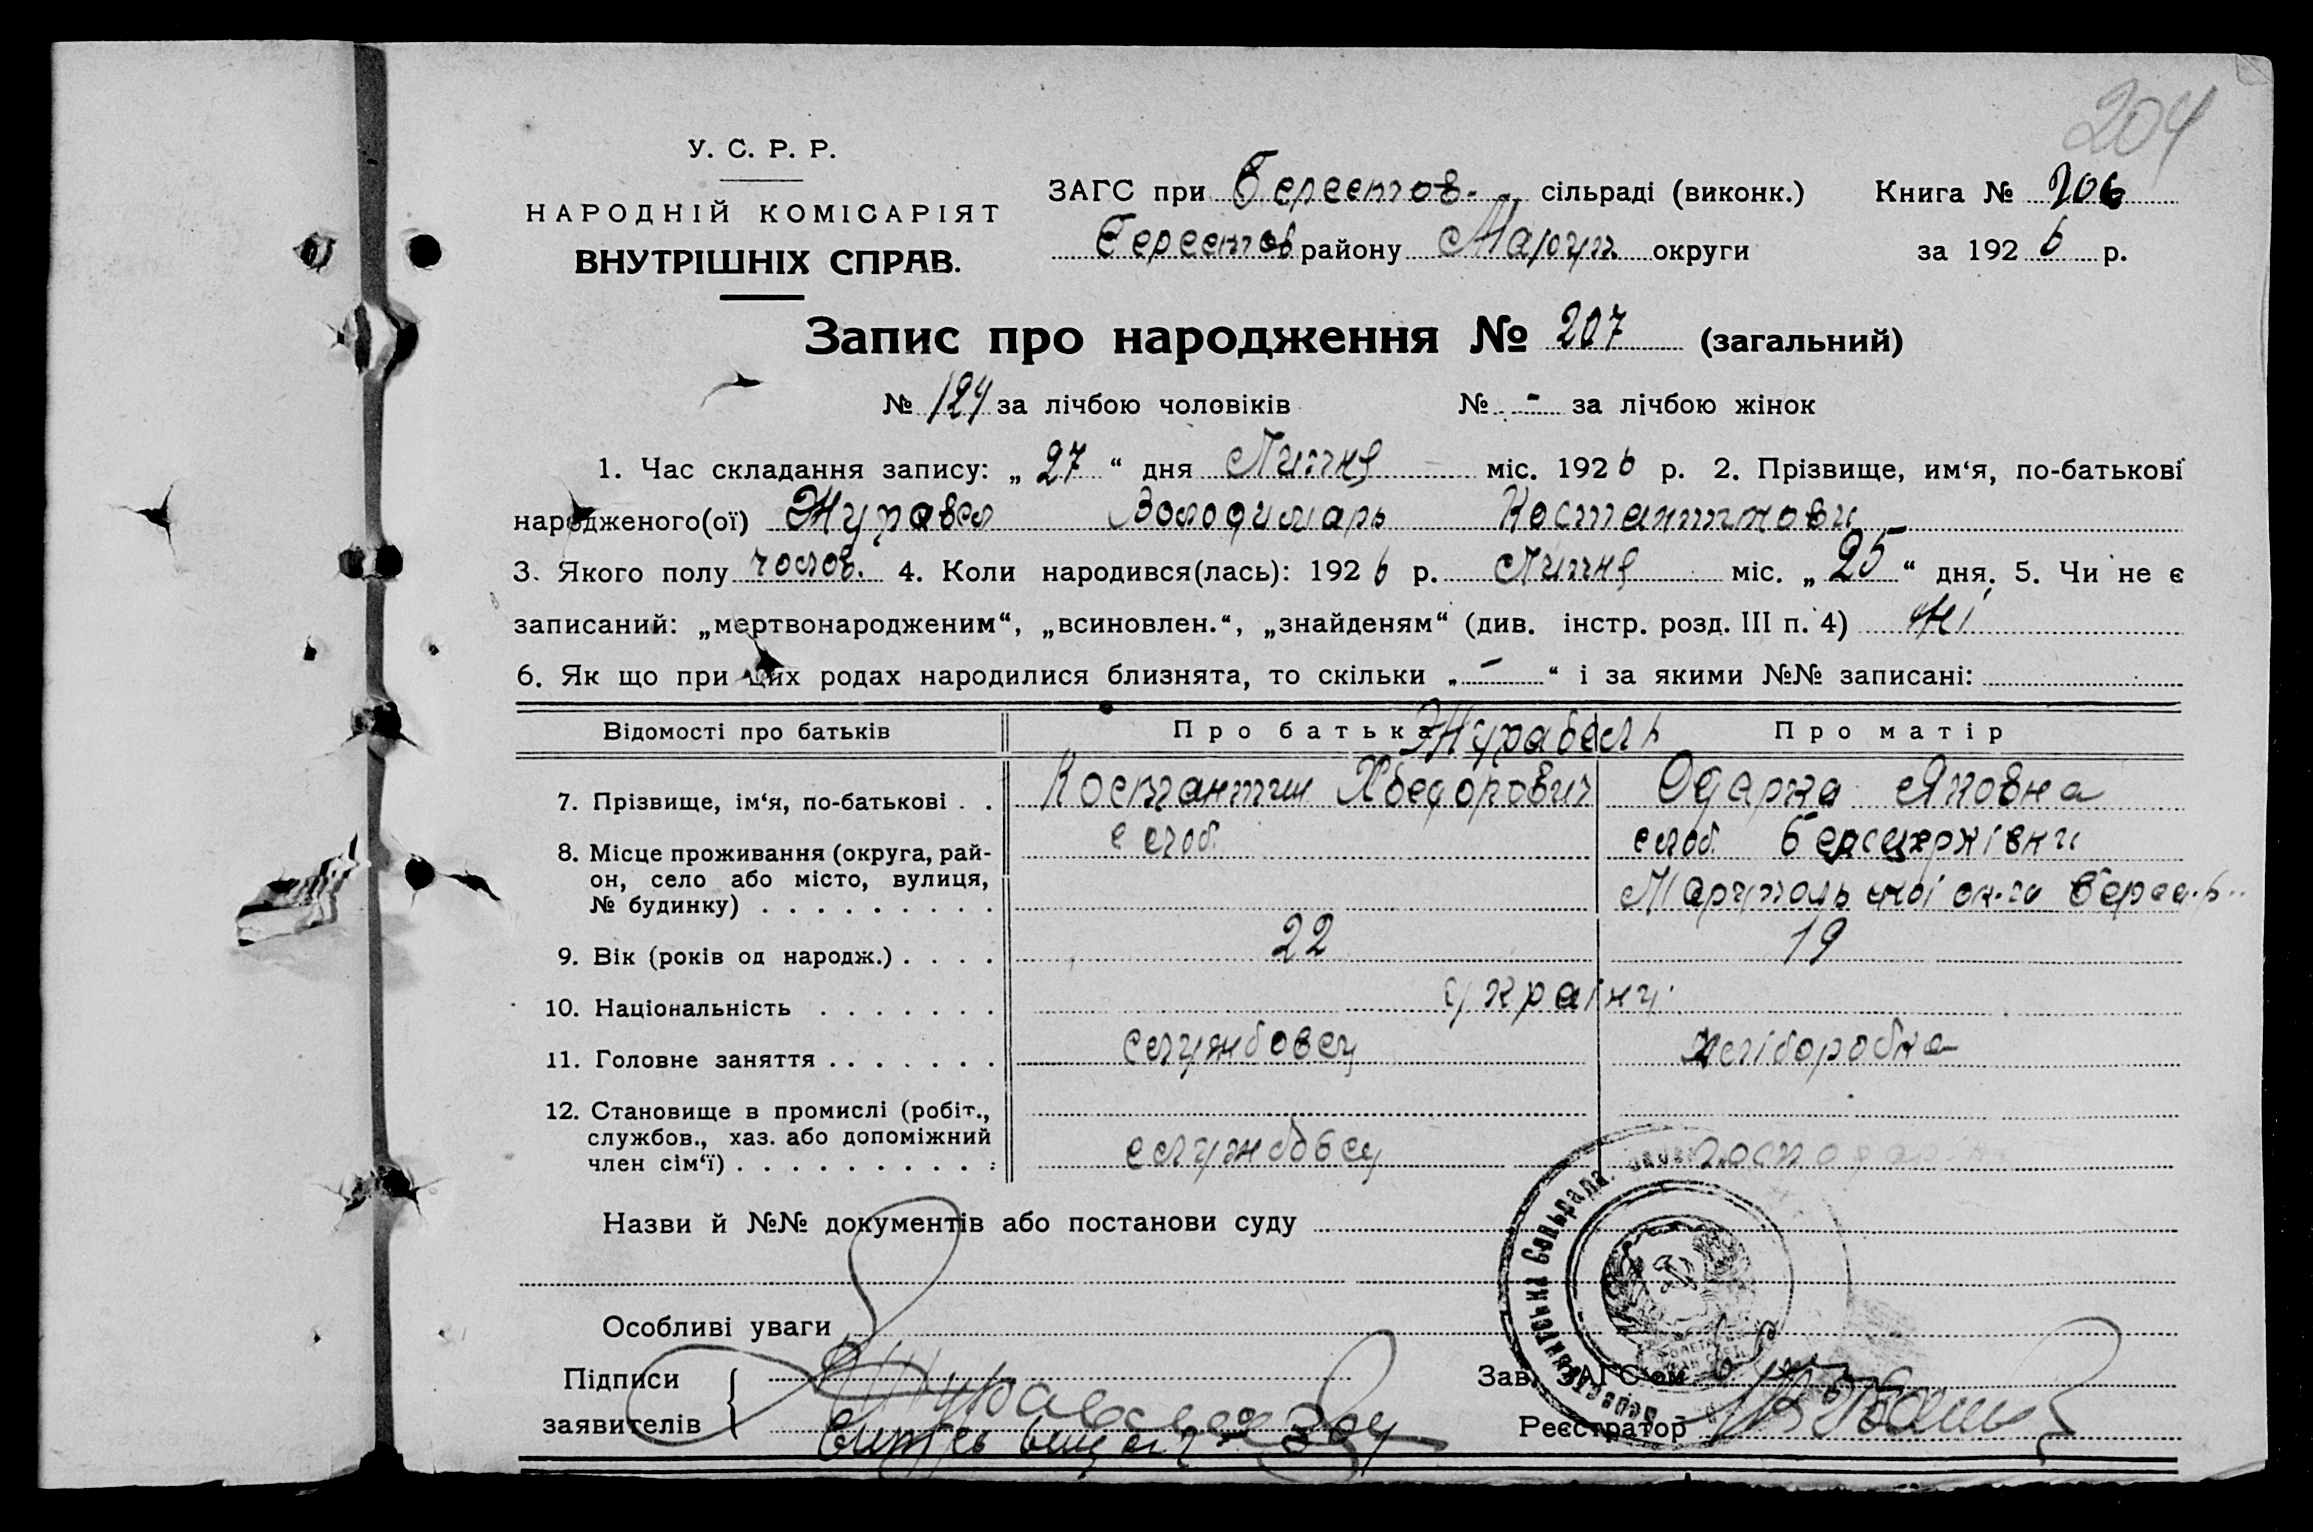 204
У. С. Р. Р.
НАРОДНІЙ КОМІСАРІЯТ
ВНУТРІШНІХ СПРАВ.
ЗАГС при Берестов. сільраді (виконк.) Книга № 206
Берестов району Маріуп. округи за 1926 р.
Запис про народження № 207 (загальний)
№ 124 за лічбою чоловіків № - за лічбою жінок
1. Час складання запису: „ 27 “ дня Липня міс. 1926 р. 2. Прізвище, им‘я, по-батькові
народженого(ої) Журавел Володимарь Костантінови
3. Якого полу чолов. 4. Коли народився(лась): 1926 р. Липня міс. „ 25 “ дня. 5. Чи не є
записаний: „мертвонародженим“, „всиновлен.“, „знайденям“ (див. інстр. розд. III п. 4) Ні
6. Як що при цих родах народилися близнята, то скільки „ — “ і за якими №№ записані:
Відомості про батьків Про батька Журавель Про матір
7. Прізвище, ім‘я, по-батькові . . Костантин Хведорович Одарка Яковна
8. Місце проживання (округа, рай- слоб. слоб.
он, село або місто, вулиця,
№ будинку) . . . . . . . . . Маріупольської
9. Вік (років од народж.) . . . . 22 19
10. Національність . . . . . . . україн.
11. Головне заняття . . . . . . . службовец хліборобка
12. Становище в промислі (робіт.,
службов., хаз. або допоміжний
член сім‘ї) . . . . . . . . . . : службовец
Назви й №№ документів або постанови суду
Особливі уваги
Підписи
заявителів
Зав. ЗАГС‘ом
Реєстратор